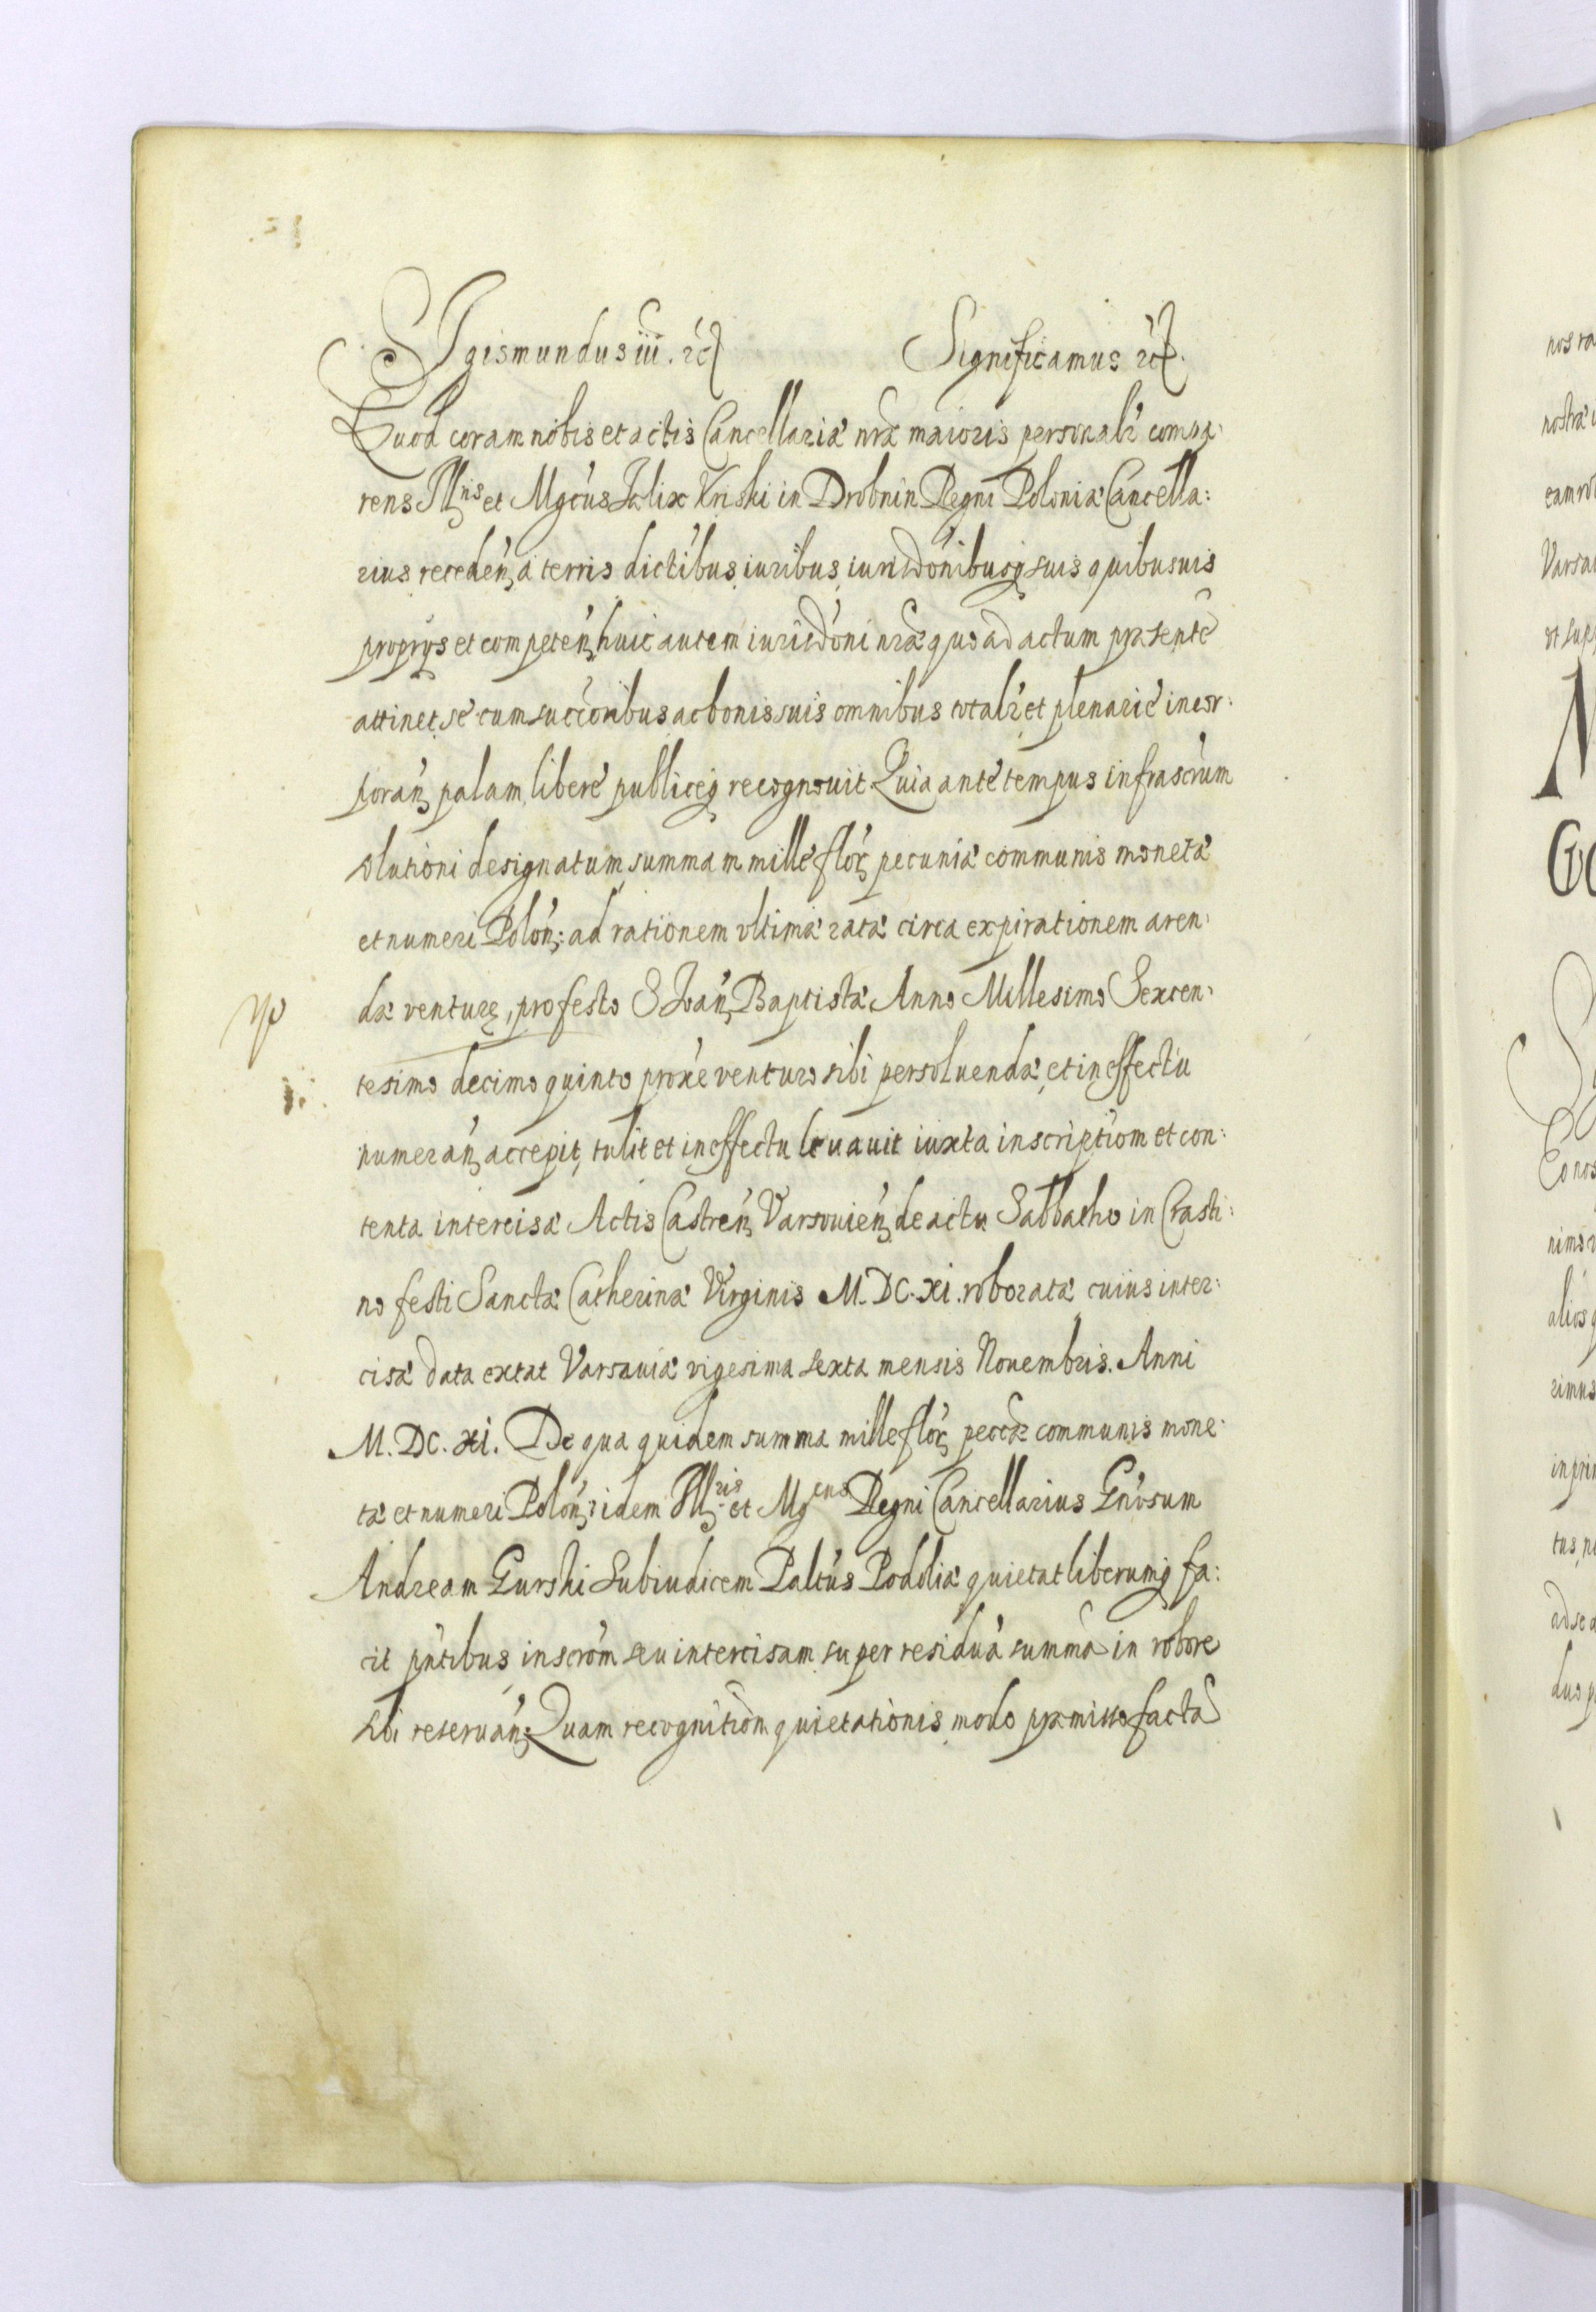 Sigismundus iii. etc. Significamus etc.
Quod coram nobis et actis Cancellariæ nr̃æ maioris personalr̃ compa:
rens Ill^ris et Mgcus Fælix Kriski in Drobnin Regni Poloniæ Cancella:
rius receden̄, à terris dictibus, iuribus, iurisdonibusq̃ suis quibusuis
proprijs et competen̄, huic autem iurisdoni nr̃æ quo ad actum præsentē
attinet, se cum succoribus ac bonis suis omnibus totalr̃ et plenariè incor:
poran̄, palam, liberè publiceq̃ recognouit. Quia antè tempus infrascrũm
solutioni designatum, summam millè flor̃, pecuniæ communis monetæ
et numeri Polon̄: ad rationem vltimæ ratæ circa expirationem aren:
dæ venturę, pro festo S. Ioan̄, Baptistæ Anno Millesimo Sexcen:
tesimo decimo quinto proxè venturo sibi persoluendæ, et in effectu
numeran̄, accepit, tulit et in effectu leuauit iuxta inscriptiom et con:
tenta intercisæ Actis Castren̄, Varsouien̄, de actu Sabbatho in Crasti:
no festi Sanctæ Catherinæ Virginis M. DC. xi. roboratæ cuius inter:
cisæ data extat Varsauiæ vigesima sexta mensis Nouembris. Anni
M. DC. xi. De qua quidem summa mille flor̃, peccæ communis mone:
tæ et numeri Polon̄: idem Ill^ris et Mg^cus Regni Cancellarius Gnosum
Andream Gurski Subiudicem Paltus Podoliæ quietat liberumq̃ fa:
cit pntibus, inscrom seu intercisam super residuā summā in robore
sibi reseruan̄. Quam recognitiom quietationis, modo præmisso factā